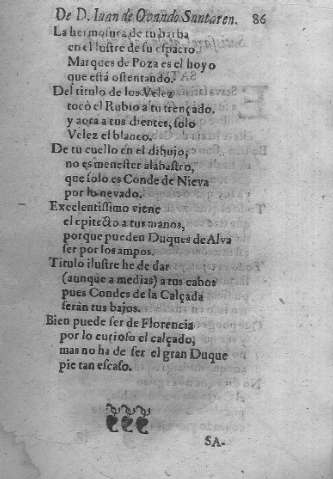 De D. Iuan de Ovando Santaren. 86
La hermosura de tu barba
en el lustre de su espacio
Marques de Poza es el hoyo
que está ostentando.
Del titulo de los Velez
tocò el Rubio a tu trençado,
y aora a tus dientes, solo
Velez el blanco.
De tu cuello en el dibujo,
no es menester alabastro,
que solo es Conde de Nieva
por lo nevado.
Excelentissimo viene
el epitecto a tus manos,
porque pueden Duques de Alva
ser por los ampos.
Titulo ilustre he de dar
(aunque a medias) a tus cabos
pues Condes de la Calçada
seràn tus bajos.
Bien puede ser de Florencia
por lo curioso el calçado,
mas no ha de ser el gran Duque
pie tan escaso.
SA-